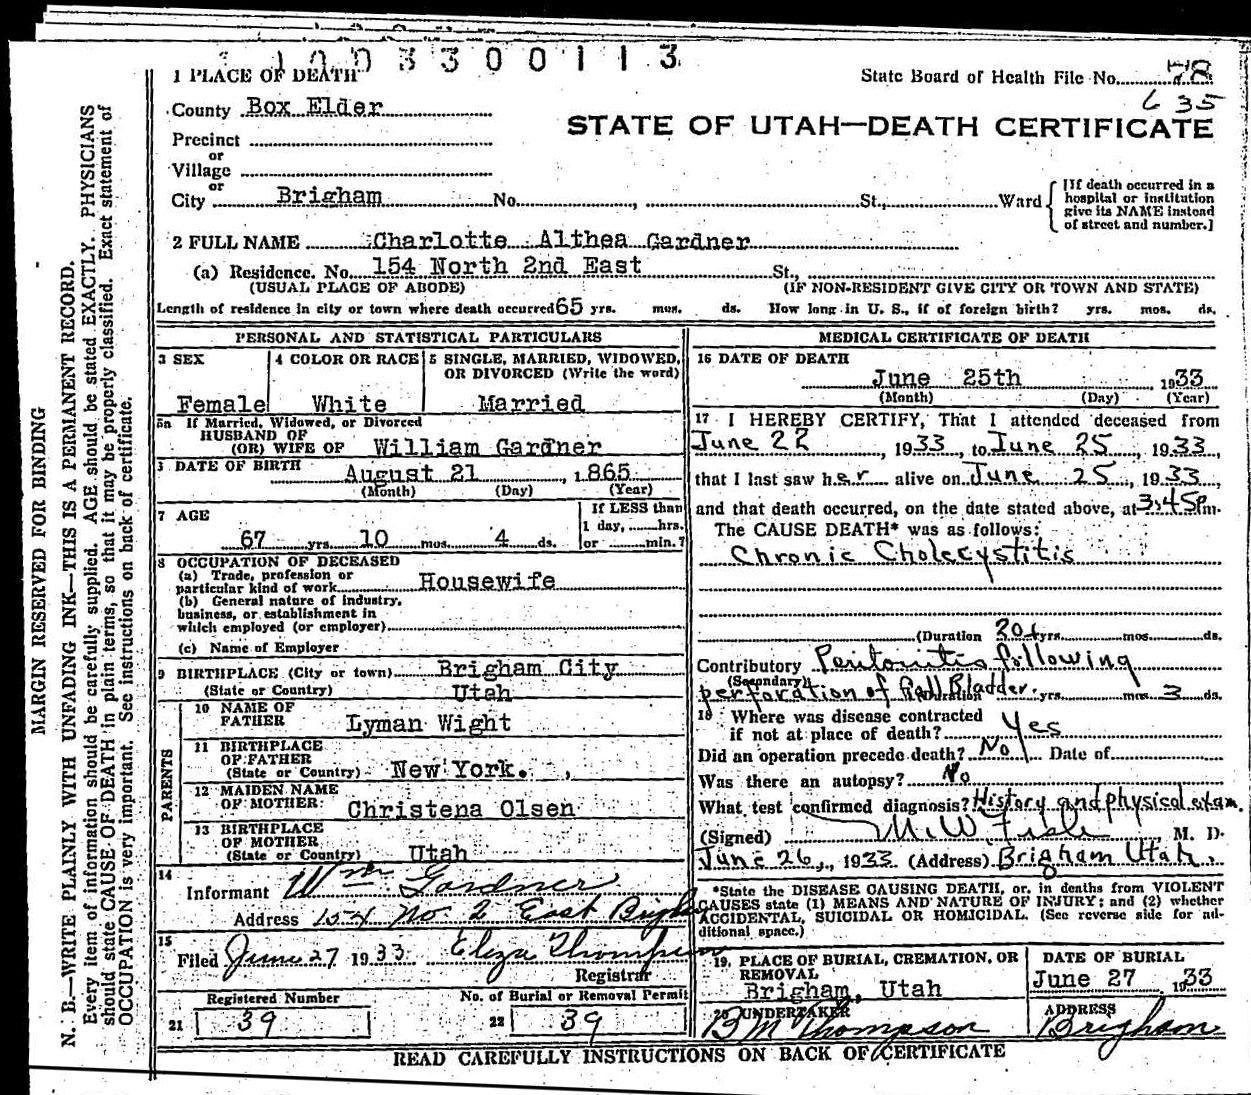 1 1 0 0 3 3 0 0 1 1 3
1 PLACE OF DEATH
State Board of Health File No. 78
635
County Box Elder
STATE OF UTAH—DEATH CERTIFICATE
Precinct
or
Village
or
City Brigham No. , St., Ward
[If death occurred in a
hospital or institution
give its NAME instead
of street and number.]
2 FULL NAME Charlotte Althea Gardner
(a) Residence. No. 154 North 2nd East St.,
(USUAL PLACE OF ABODE) (IF NON-RESIDENT GIVE CITY OR TOWN AND STATE)
Length of residence in city or town where death occurred 65 yrs. mos. ds. How long in U. S., if of foreign birth? yrs. mos. ds.
PERSONAL AND STATISTICAL PARTICULARS
3 SEX
Female
4 COLOR OR RACE
White
5 SINGLE, MARRIED, WIDOWED,
OR DIVORCED (Write the word)
Married
5a If Married, Widowed, or Divorced
HUSBAND OF
(OR) WIFE OF William Gardner
DATE OF BIRTH August 21, 1865
(Month) (Day) (Year)
7 AGE
67 yrs. 10 mos. 4 ds.
If LESS than
1 day, hrs.
or min.?
8 OCCUPATION OF DECEASED
(a) Trade, profession or
particular kind of work Housewife
(b) General nature of industry,
business, or establishment in
which employed (or employer)
(c) Name of Employer
9 BIRTHPLACE (City or town) Brigham City
(State or Country) Utah
PARENTS
10 NAME OF
FATHER Lyman Wight
11 BIRTHPLACE
OF FATHER
(State or Country) New York.
12 MAIDEN NAME
OF MOTHER Christena Olsen
13 BIRTHPLACE
OF MOTHER
(State or Country) Utah
14
Informant Wm Gardner
Address 154 No. 2 East Brigham
15
Filed June 27 1933 Eliza Thompson
Registrar
Registered Number
21 39
No. of Burial or Removal Permit
22 39
MEDICAL CERTIFICATE OF DEATH
16 DATE OF DEATH
June 25th 1933
(Month) (Day) (Year)
17 I HEREBY CERTIFY, That I attended deceased from
June 22, 1933, to June 25, 1933,
that I last saw her alive on June 25, 1933,
and that death occurred, on the date stated above, at 3:45 p m.
The CAUSE DEATH* was as follows:
Chronic Cholecystitis
(Duration 20+ yrs. mos. ds.
Contributory Peritonitis following
(Secondary)
perforation of Gall Bladder. Duration yrs. mos. 3 ds.
18 Where was disease contracted
if not at place of death? Yes
Did an operation precede death? No Date of
Was there an autopsy? No
What test confirmed diagnosis? History and physical exam.
(Signed) M. D.
June 26, 1933 (Address) Brigham Utah.
*State the DISEASE CAUSING DEATH, or, in deaths from VIOLENT
CAUSES state (1) MEANS AND NATURE OF INJURY; and (2) whether
ACCIDENTAL, SUICIDAL OR HOMICIDAL. (See reverse side for ad-
ditional space.)
19. PLACE OF BURIAL, CREMATION, OR
REMOVAL
Brigham, Utah
DATE OF BURIAL
June 27 1933
20 UNDERTAKER
B M Thompson
ADDRESS
Brigham
READ CAREFULLY INSTRUCTIONS ON BACK OF CERTIFICATE
MARGIN RESERVED FOR BINDING
N. B.—WRITE PLAINLY WITH UNFADING INK—THIS IS A PERMANENT RECORD.
Every item of information should be carefully supplied. AGE should be stated EXACTLY. PHYSICIANS
should state CAUSE OF DEATH in plain terms, so that it may be properly classified. Exact statement of
OCCUPATION is very important. See instructions on back of certificate.